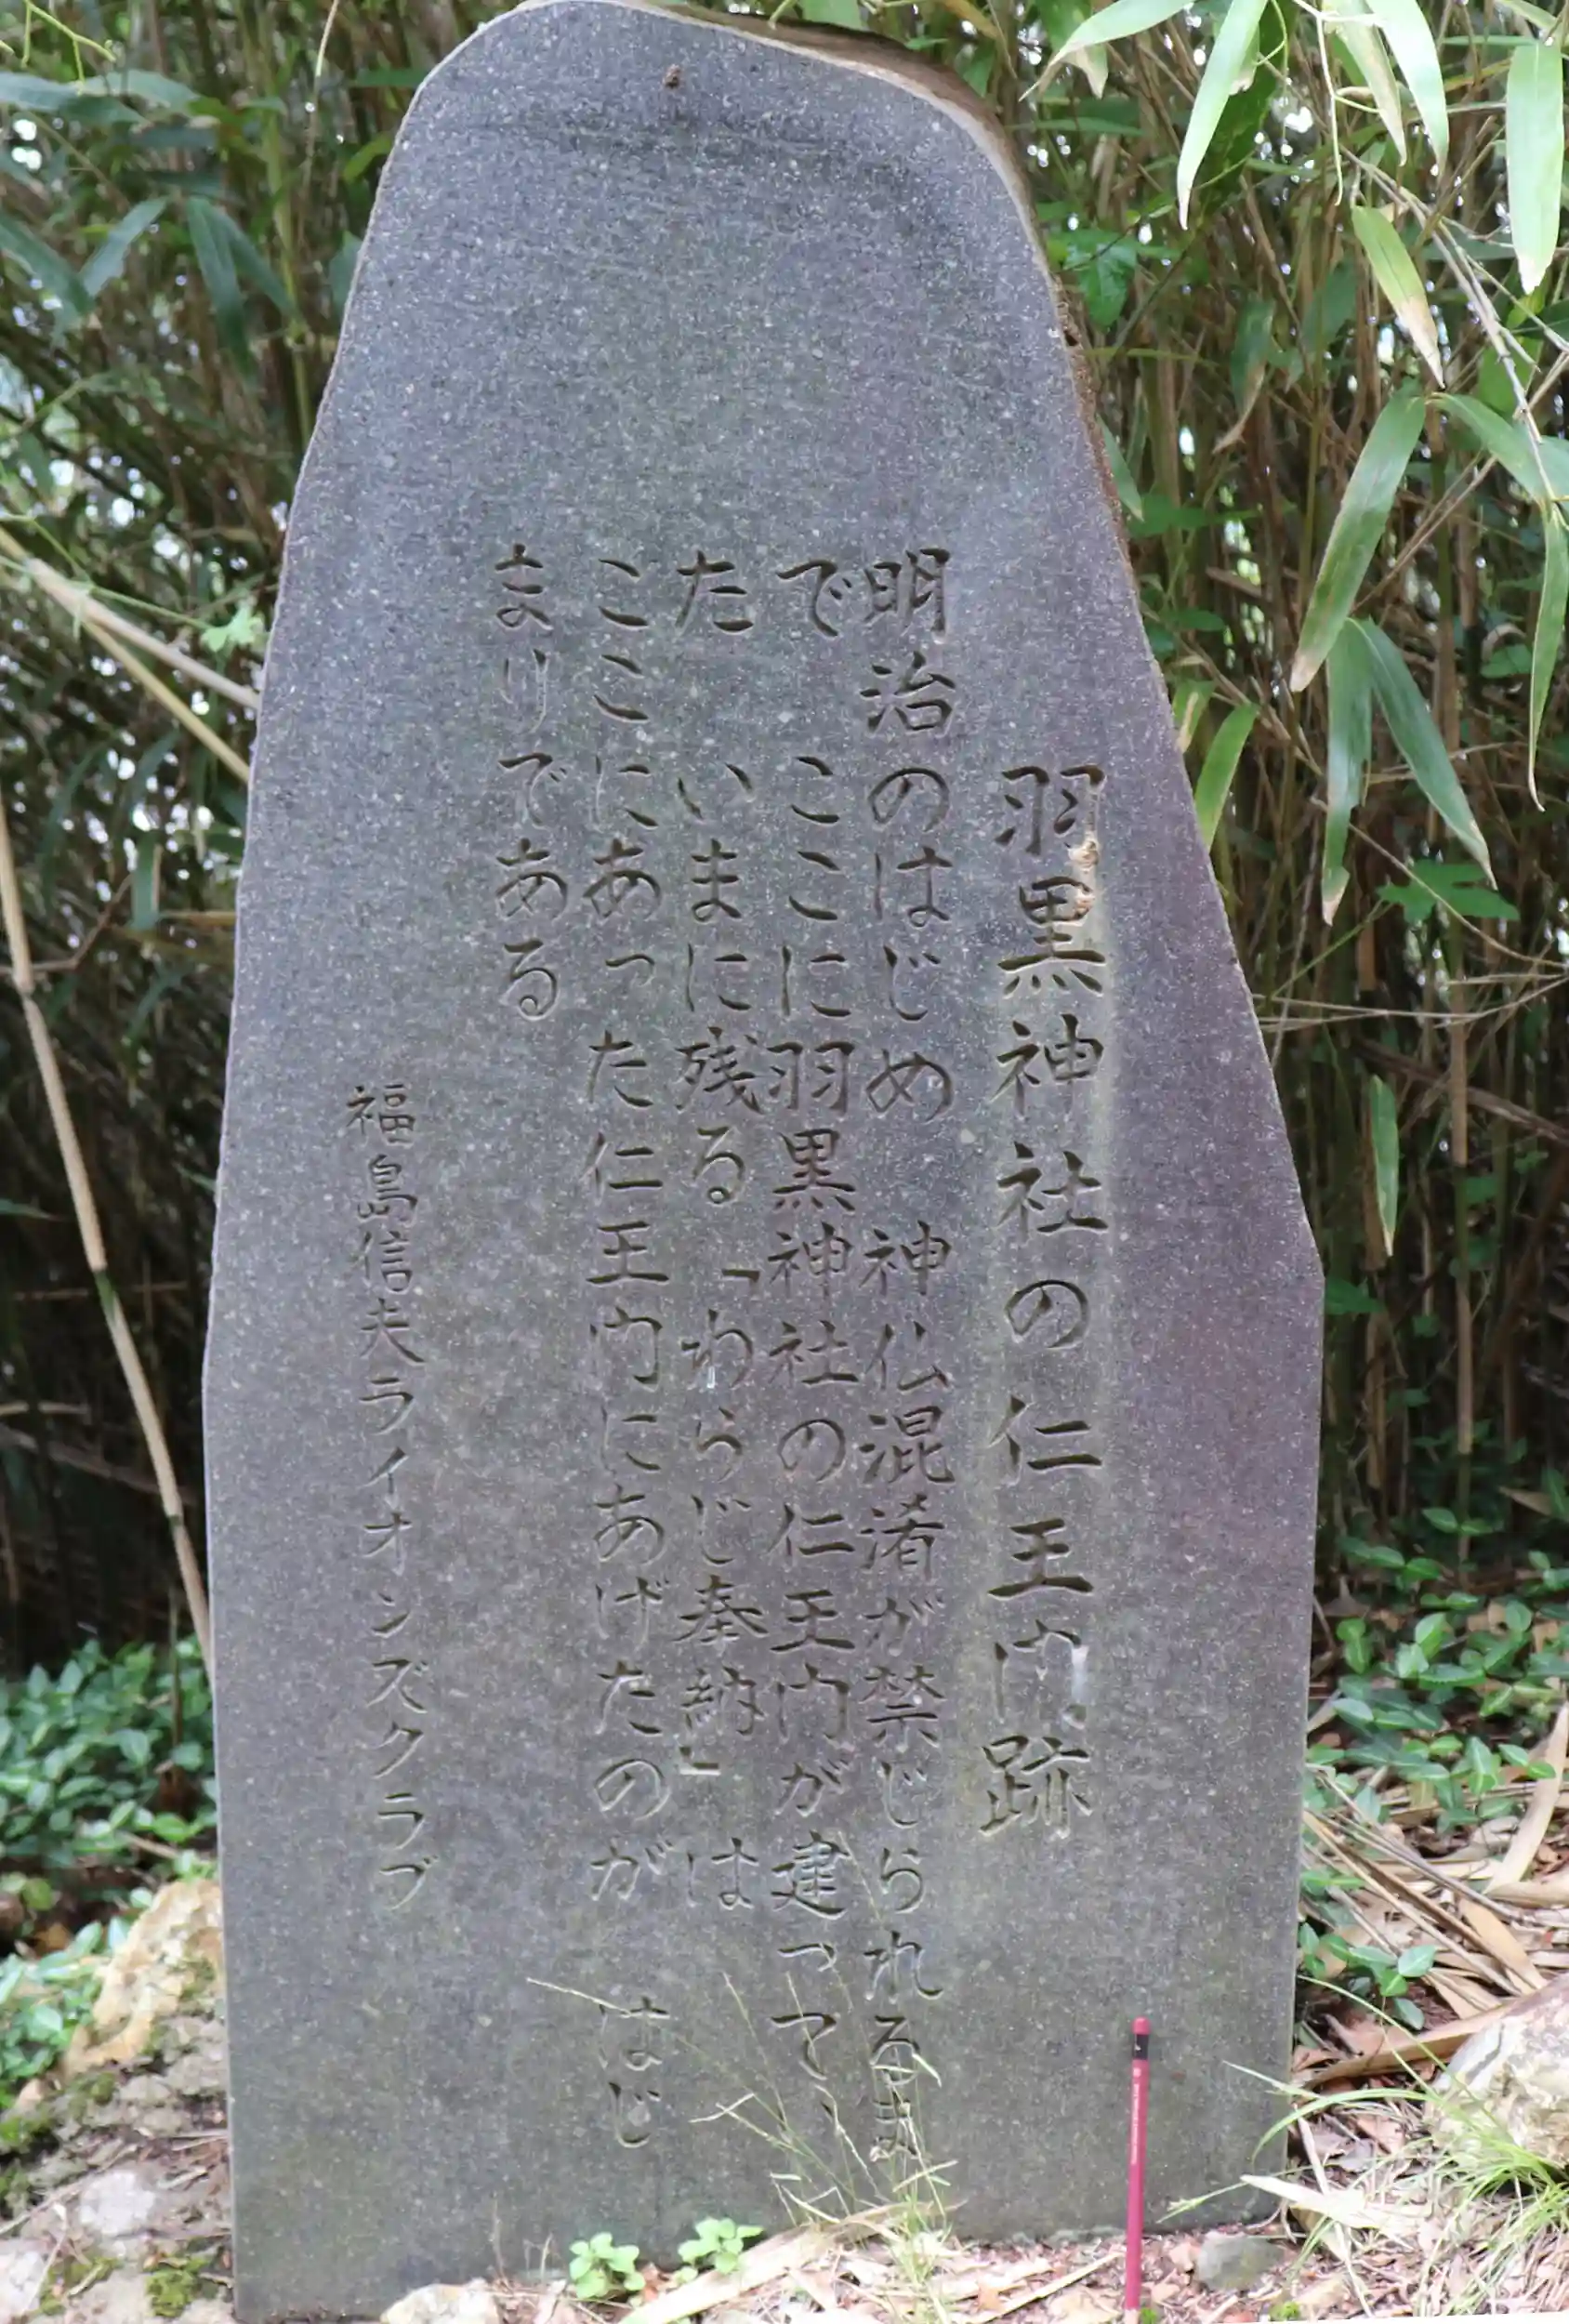 羽黒神社の仁王門跡
明治のはじめ　神仏混淆が禁じられるま
で　ここに羽黒神社の仁王門が建ってい
た　いまに残る「わらじ奉納」は
ここにあった仁王門にあげたのが　はじ
まりである
福島信夫ライオンズクラブ